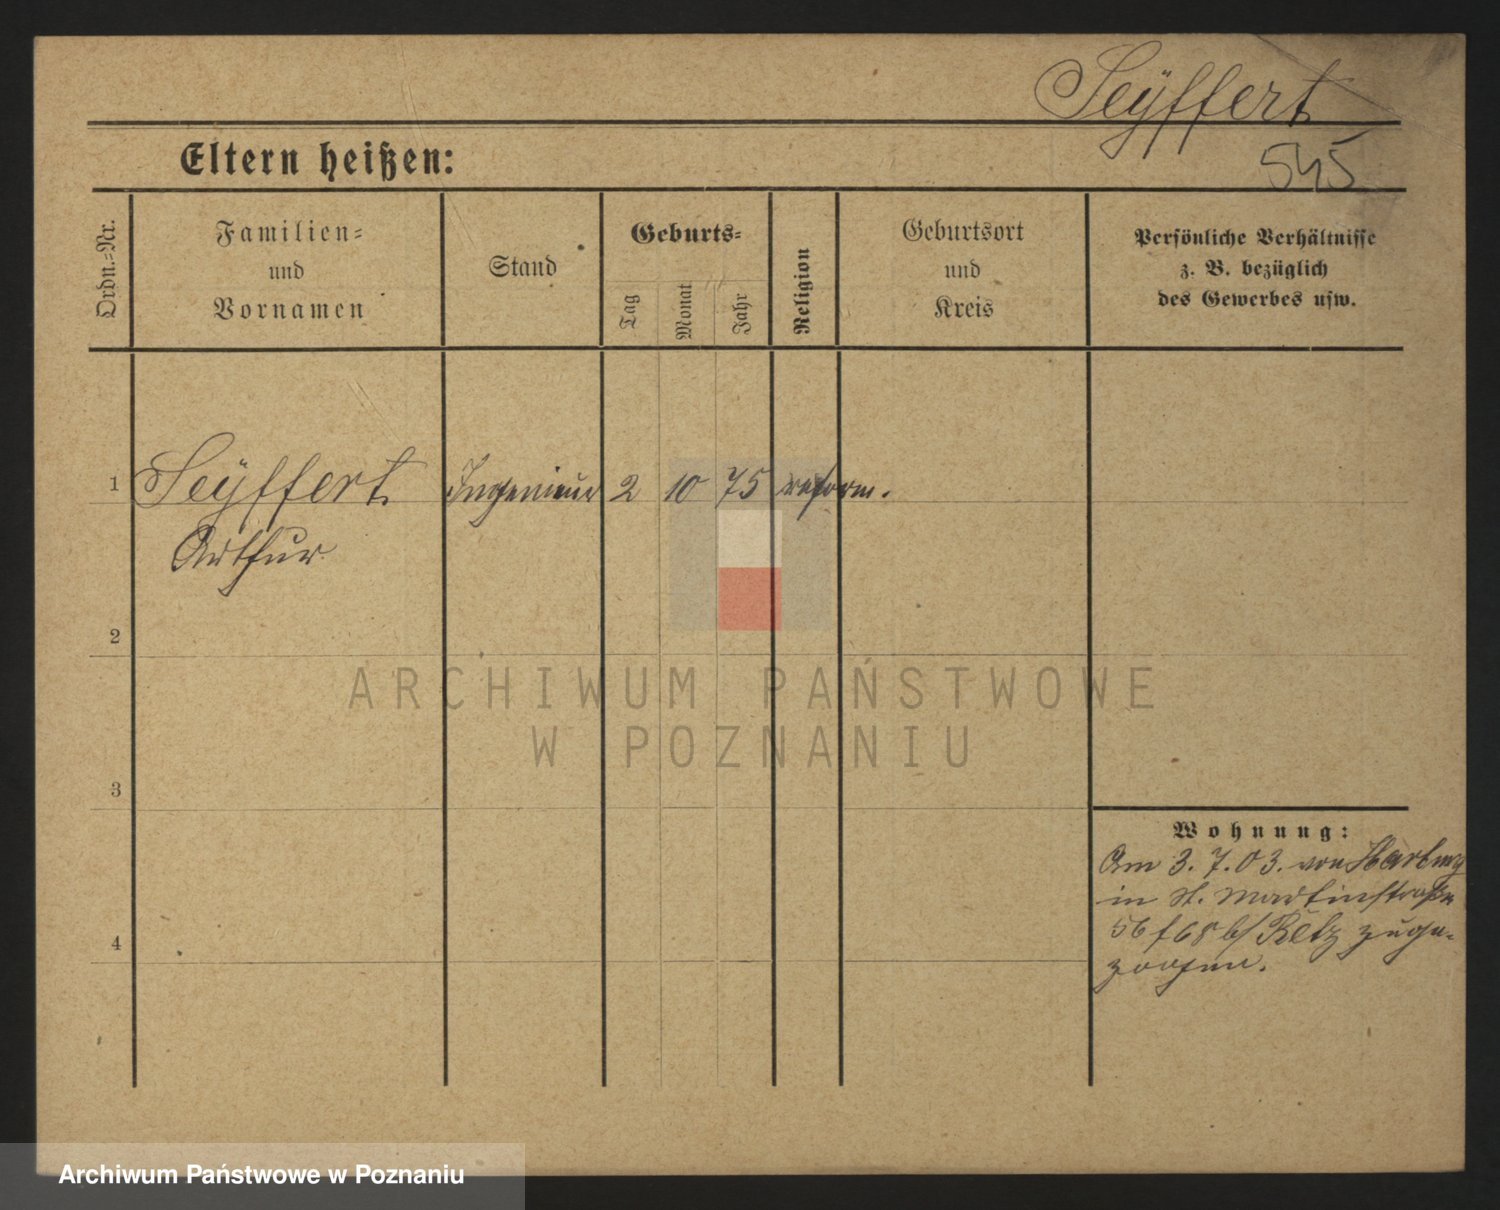 Seÿffert
545
Eltern heißen:
Ordn.=Nr.
Familien=
und
Vornamen
Stand
Geburts=
Tag
Monat
Jahr
Religion
Geburtsort
und
Kreis
Persönliche Verhältnisse
z. B. bezüglich
des Gewerbes usw.
1 Seÿffert Ingenieur 2 10 75 reform.
Arthur
2
3
4
Wohnung:
Am 3. 7. 03. von Harburg
in St. Martinstraße
56 b/ zuge-
zogen.
ARCHIWUM PAŃSTWOWE
W POZNANIU
Archiwum Państwowe w Poznaniu